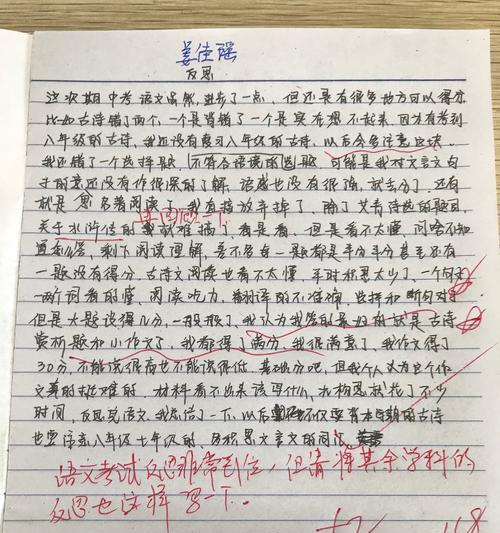 姜佳瑶
反思
这次期中考语文虽然进步了一点，但还是有很多地方可以得分
比如古诗错了两个，一个是写错了一个是实在想不起来，因为有考到
八年级的古诗，我还没有复习八年级的古诗，以后会多注意这块
我还错了一个选择题（不符合语境的）题，可能是我对文言文句
子的意还没有作很深的了解，语感也没有很强，就丢分了，还有
就是名著阅读了，我直接放弃掉了，除了艾青诗选的题目，
重回顾一下
关于水浒传的我就难搞了，有是看，但是看不太懂，问啥不知
道怎么答，剩下阅读理解，差不多每一题都是半分半分甚至还有
一题没有得分，古诗文阅读也看不太懂，平时积累太少了，一个句子
一两个词看的懂，阅读吃力，翻译的不准确，选择和断句对
但是大题没得几分，一般般了，我认为我答的最好的就是古诗
赏析题和小作文了，我都得了满分，我很满意了，我作文得了
30分，不能说很高也不能说得低，基础分吧，但我个人认为这个作
文真的挺难的，材料看不出来该写什么，光构思就花了不少
时间，反思完语文，我总结了一下，以后不仅要背本学期的古诗
也要注意八年级七年级的，多积累文言文的词汇
语文考试反思非常到位，但请将其余学科的
反思也这样写一下。